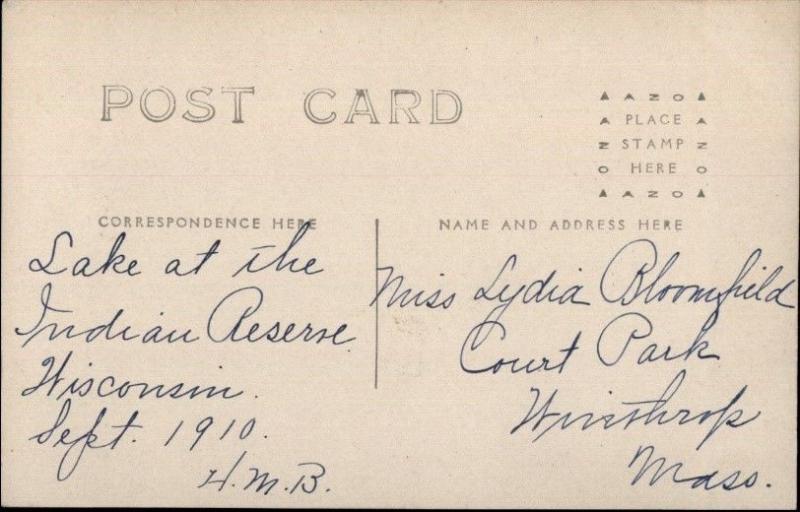 POST CARD
AZO
PLACE
STAMP
HERE
AZO
CORRESPONDENCE HERE
NAME AND ADDRESS HERE
Lake at the
Indian Reserve
Wisconsin.
Sept. 1910.
H.M.B.
Miss Lydia Bloomfield
Court Park
Winthrop
Mass.